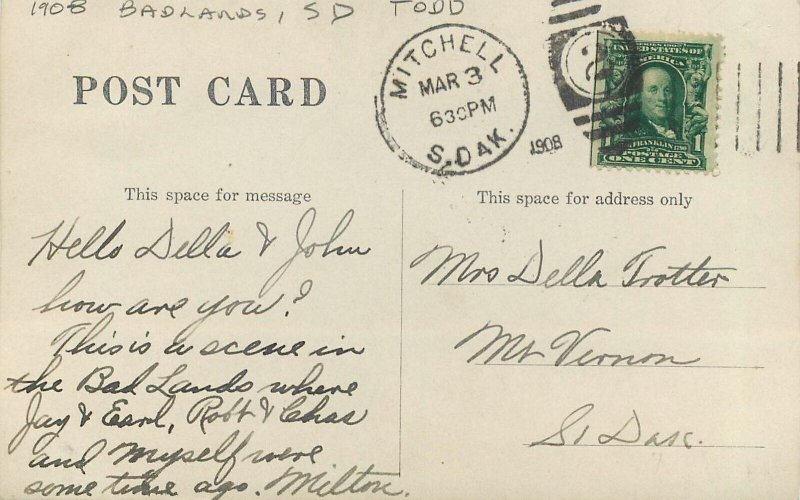 1908 BADLANDS, SD TODD
POST CARD
MITCHELL
MAR 3
630PM
S.DAK.
1908
SERIES 1902
UNITED STATES OF
AMERICA
FRANKLIN
1
POSTAGE
ONE CENT
This space for message
This space for address only
Hello Della & John
how are you?
This is a scene in
the Bad Lands where
Jay & Earl, Robt & Chas
and myself were
some time ago. Milton.
Mrs Della Trotter
Mt Vernon
So Dak.